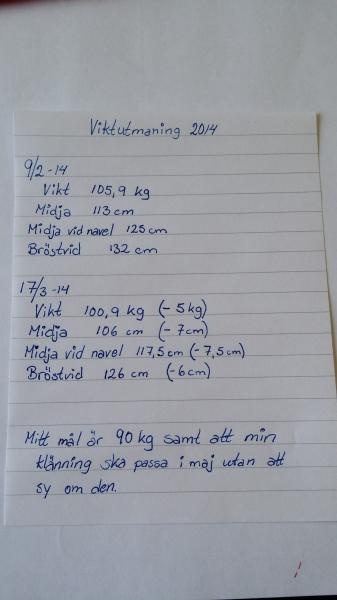 Viktutmaning 2014
9/2-14
Vikt 105,9 kg
Midja 113 cm
Midja vid navel 125 cm
Bröstvid 132 cm
17/3-14
Vikt 100,9 kg (-5kg)
Midja 106 cm (-7cm)
Midja vid navel 117,5cm (-7,5cm)
Bröstvid 126 cm (-6cm)
Mitt mål är 90 kg samt att min
klänning ska passa i maj utan att
sy om den.